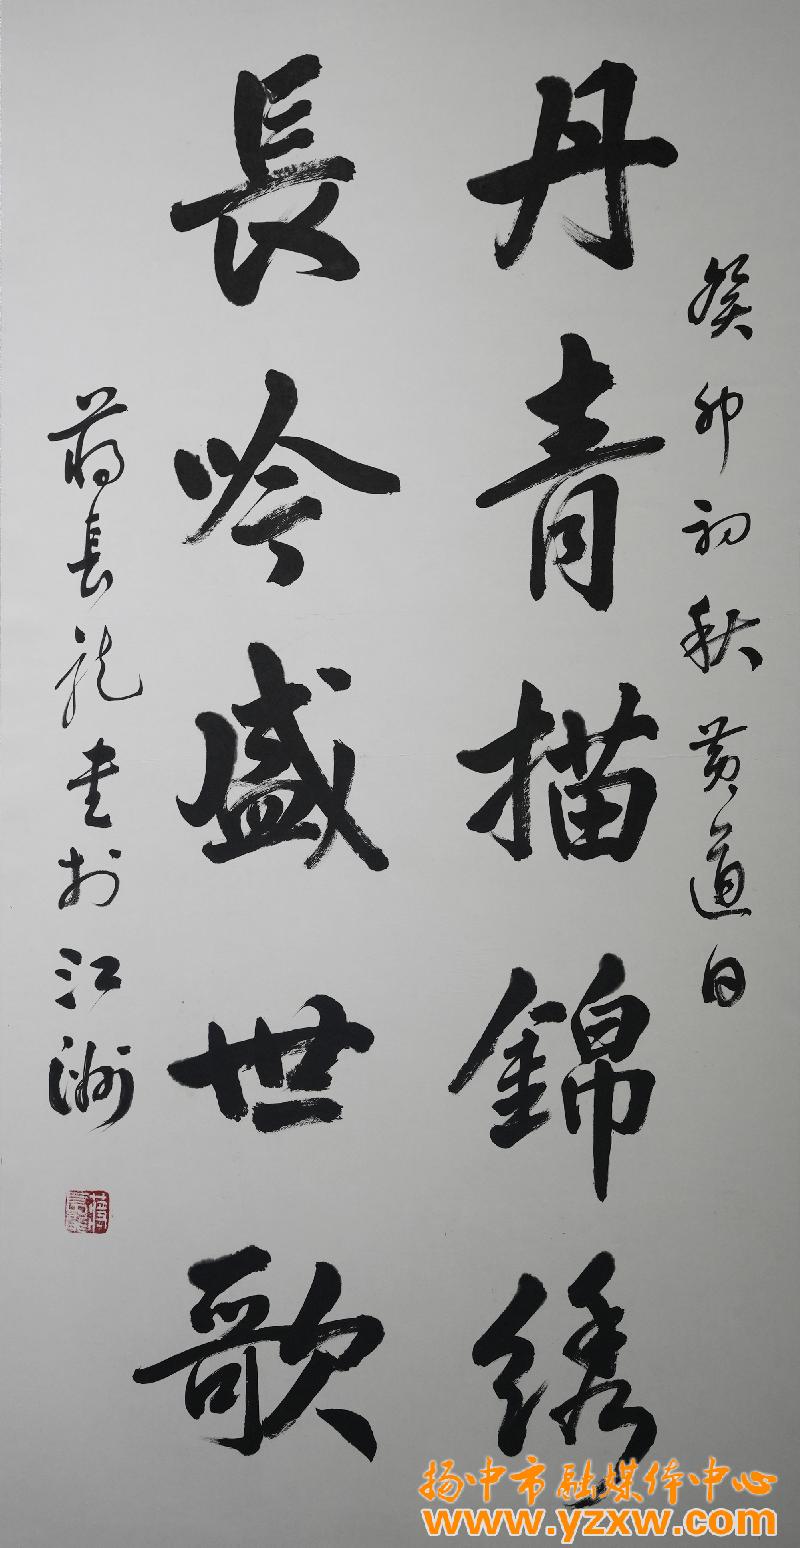 癸卯初秋黄道日
丹青描錦绣
長吟盛世歌
蒋長龙书於江洲
扬中市融媒体中心
www.yzxw.com